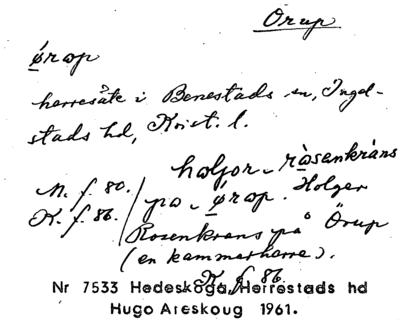 Örup
ørap
herresäte i Benestads sn, Ingel-
stads hd, Krist. l.
haljor - råsenkråns
M. f. 80.
på - ørap. Holger
K. f. 86.
Rosenkrans på Örup
(en kammarherre).
K. f. 86.
Nr 7533 Hedeskoga, Herrestads hd
Hugo Areskoug 1961.